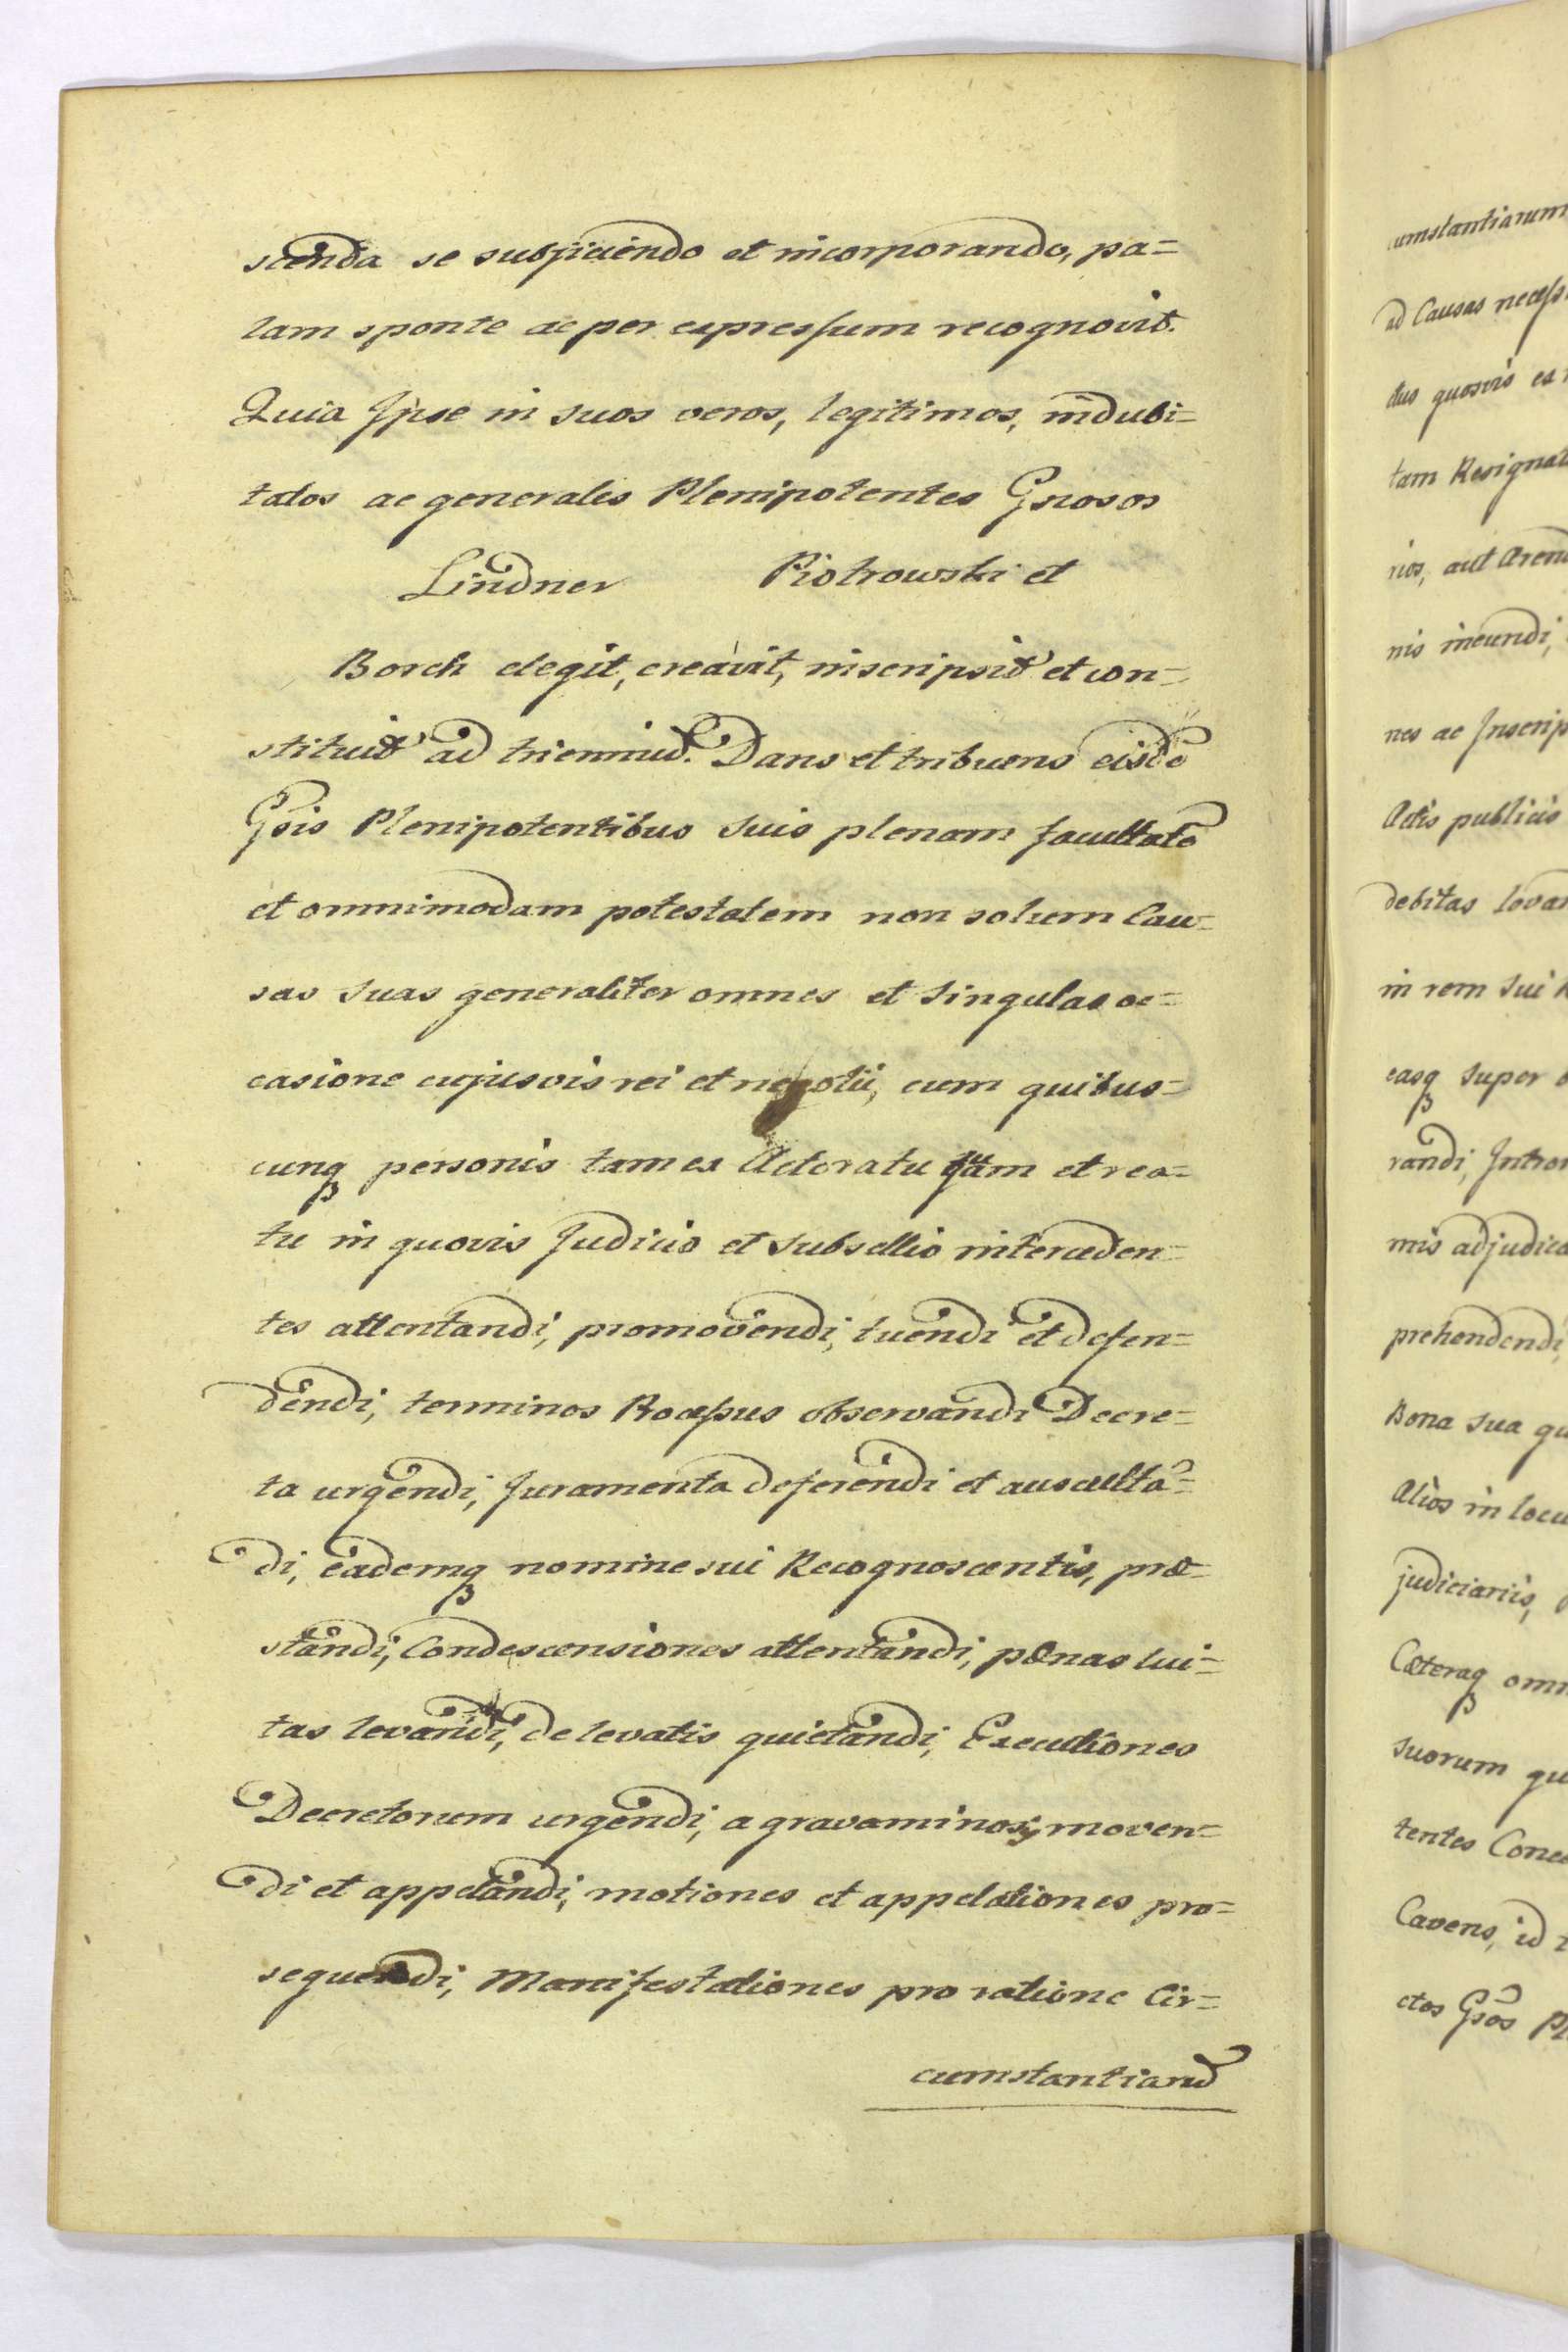 scenda se subjiciendo et incorporando, pa=
lam sponte ac per expressum recognovit.
Quia Ipse in suos veros, legitimos, indubi=
tatos ac generales Plenipotentes Gnosos
Lindner Piotrowski et
Borch elegit, creavit, inscripsit et con=
stituit ad trienniu. Dans et tribuens eisdē
Gsis Plenipotentibus suis plenam facultatē
et omnimodam potestatem non solum Cau=
sas suas generaliter omnes et singulas oc=
casione cujusvis rei et negotii, cum quibus=
cunq personis tam ex Actoratu quam et rea=
tu in quovis Judicio et Subsellio interceden=
tes attentandi, promovendi, tuendi et defen=
dendi, terminos Processus observandi Decre=
ta urgendi, Juramenta deferendi et ausculta=
di, eademq nomine sui Recognoscentis, præ=
standi, Condescensiones attentandi, pœnas lui=
tas levandi, de levatis quietandi, Executiones
Decretorum urgendi, a gravaminosis moven=
di et appelandi, motiones et appelationes pro=
sequendi, Manifestationes pro ratione Cir=
cumstantiaru
umstantiarum
ad Causas necess
dus quosvis ex
tam Resignat
rios, aut Arend
nis ineundi,
nes ac Inscrip
Actis publicis
debitas levan
in rem sui R
easq super
randi, Intro
mis adjudica
prehendendi,
Bona sua qu
Alios in locu
judiciariis,
Cæteraq omn
suorum qu
tentes Conce
Cavens, id
ctos Gsos Pl